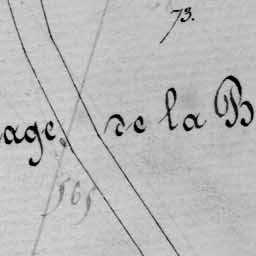 73.
age de la B
565